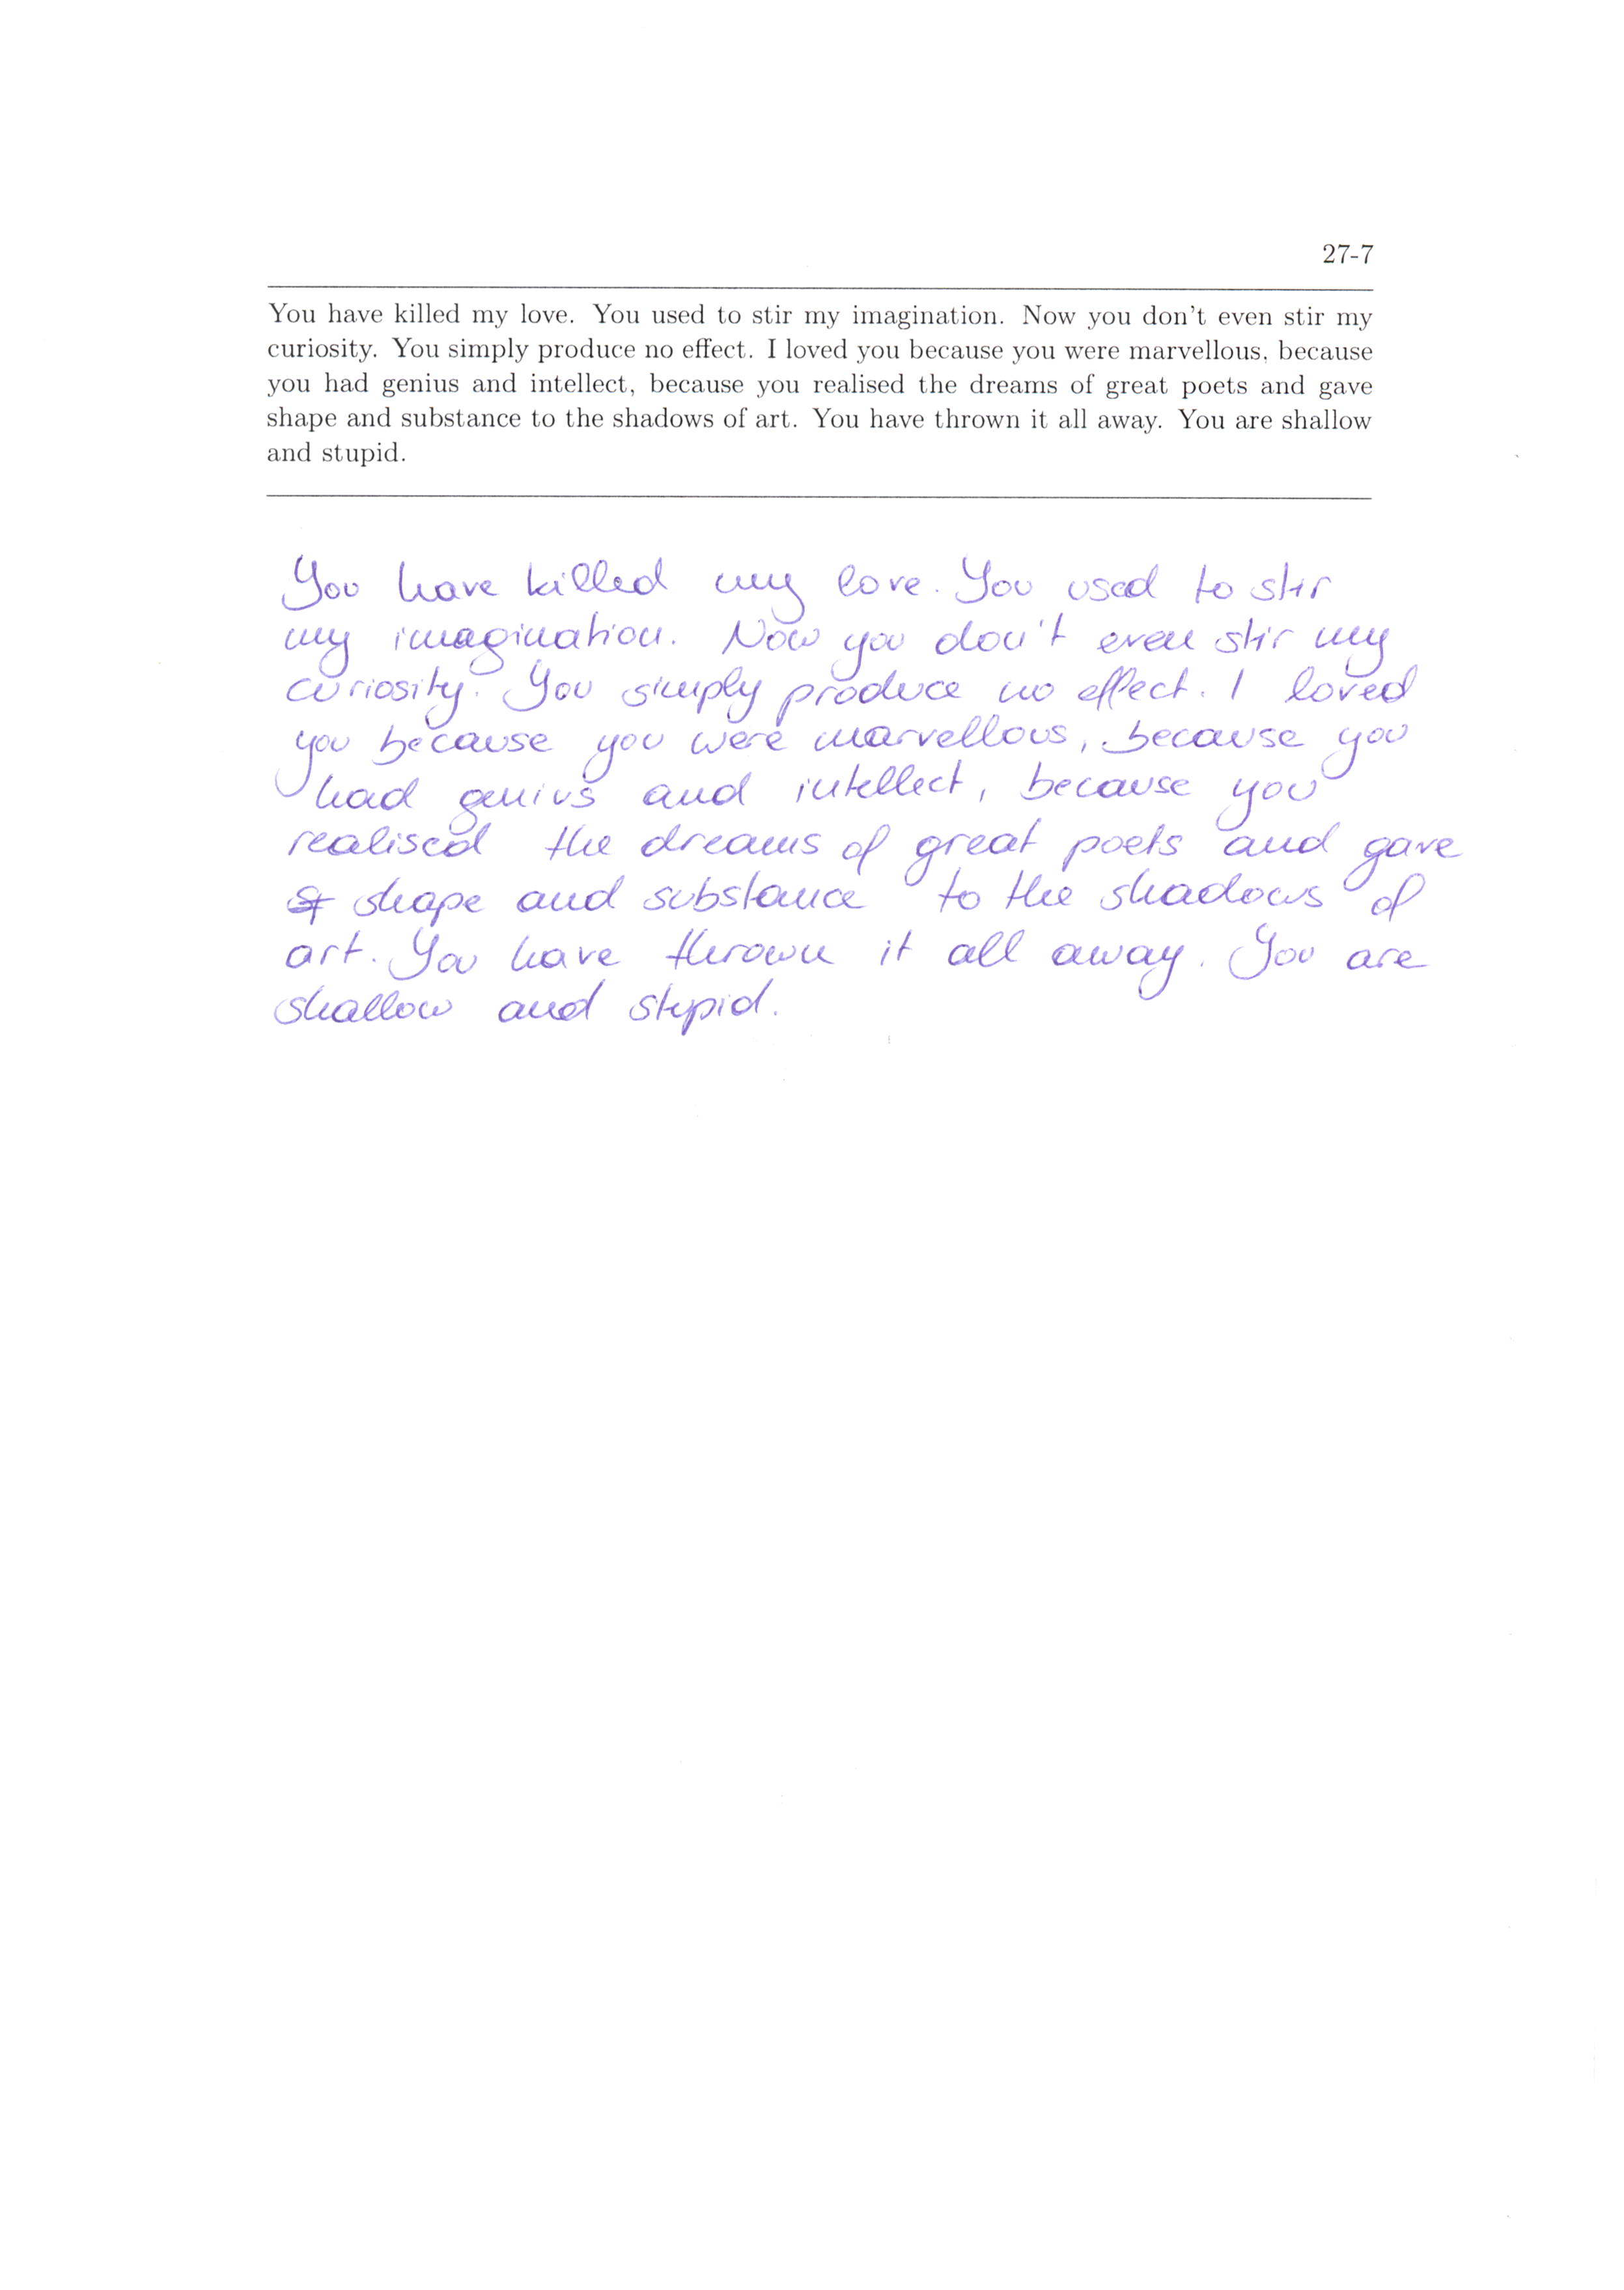 27-7
You have killed my love. You used to stir my imagination. Now you don't even stir my
curiosity. You simply produce no effect. I loved you because you were marvellous, because
you had genius and intellect, because you realised the dreams of great poets and gave
shape and substance to the shadows of art. You have thrown it all away. You are shallow
and stupid.
You have killed my love. You used to stir
my imagination. Now you don't even stir my
curiosity. You simply produce no effect. I loved
you because you were marvellous, because you
had genius and intellect, because you
realised the dreams of great poets and gave
shape and substance to the shadows of
art. You have thrown it all away. You are
shallow and stupid.